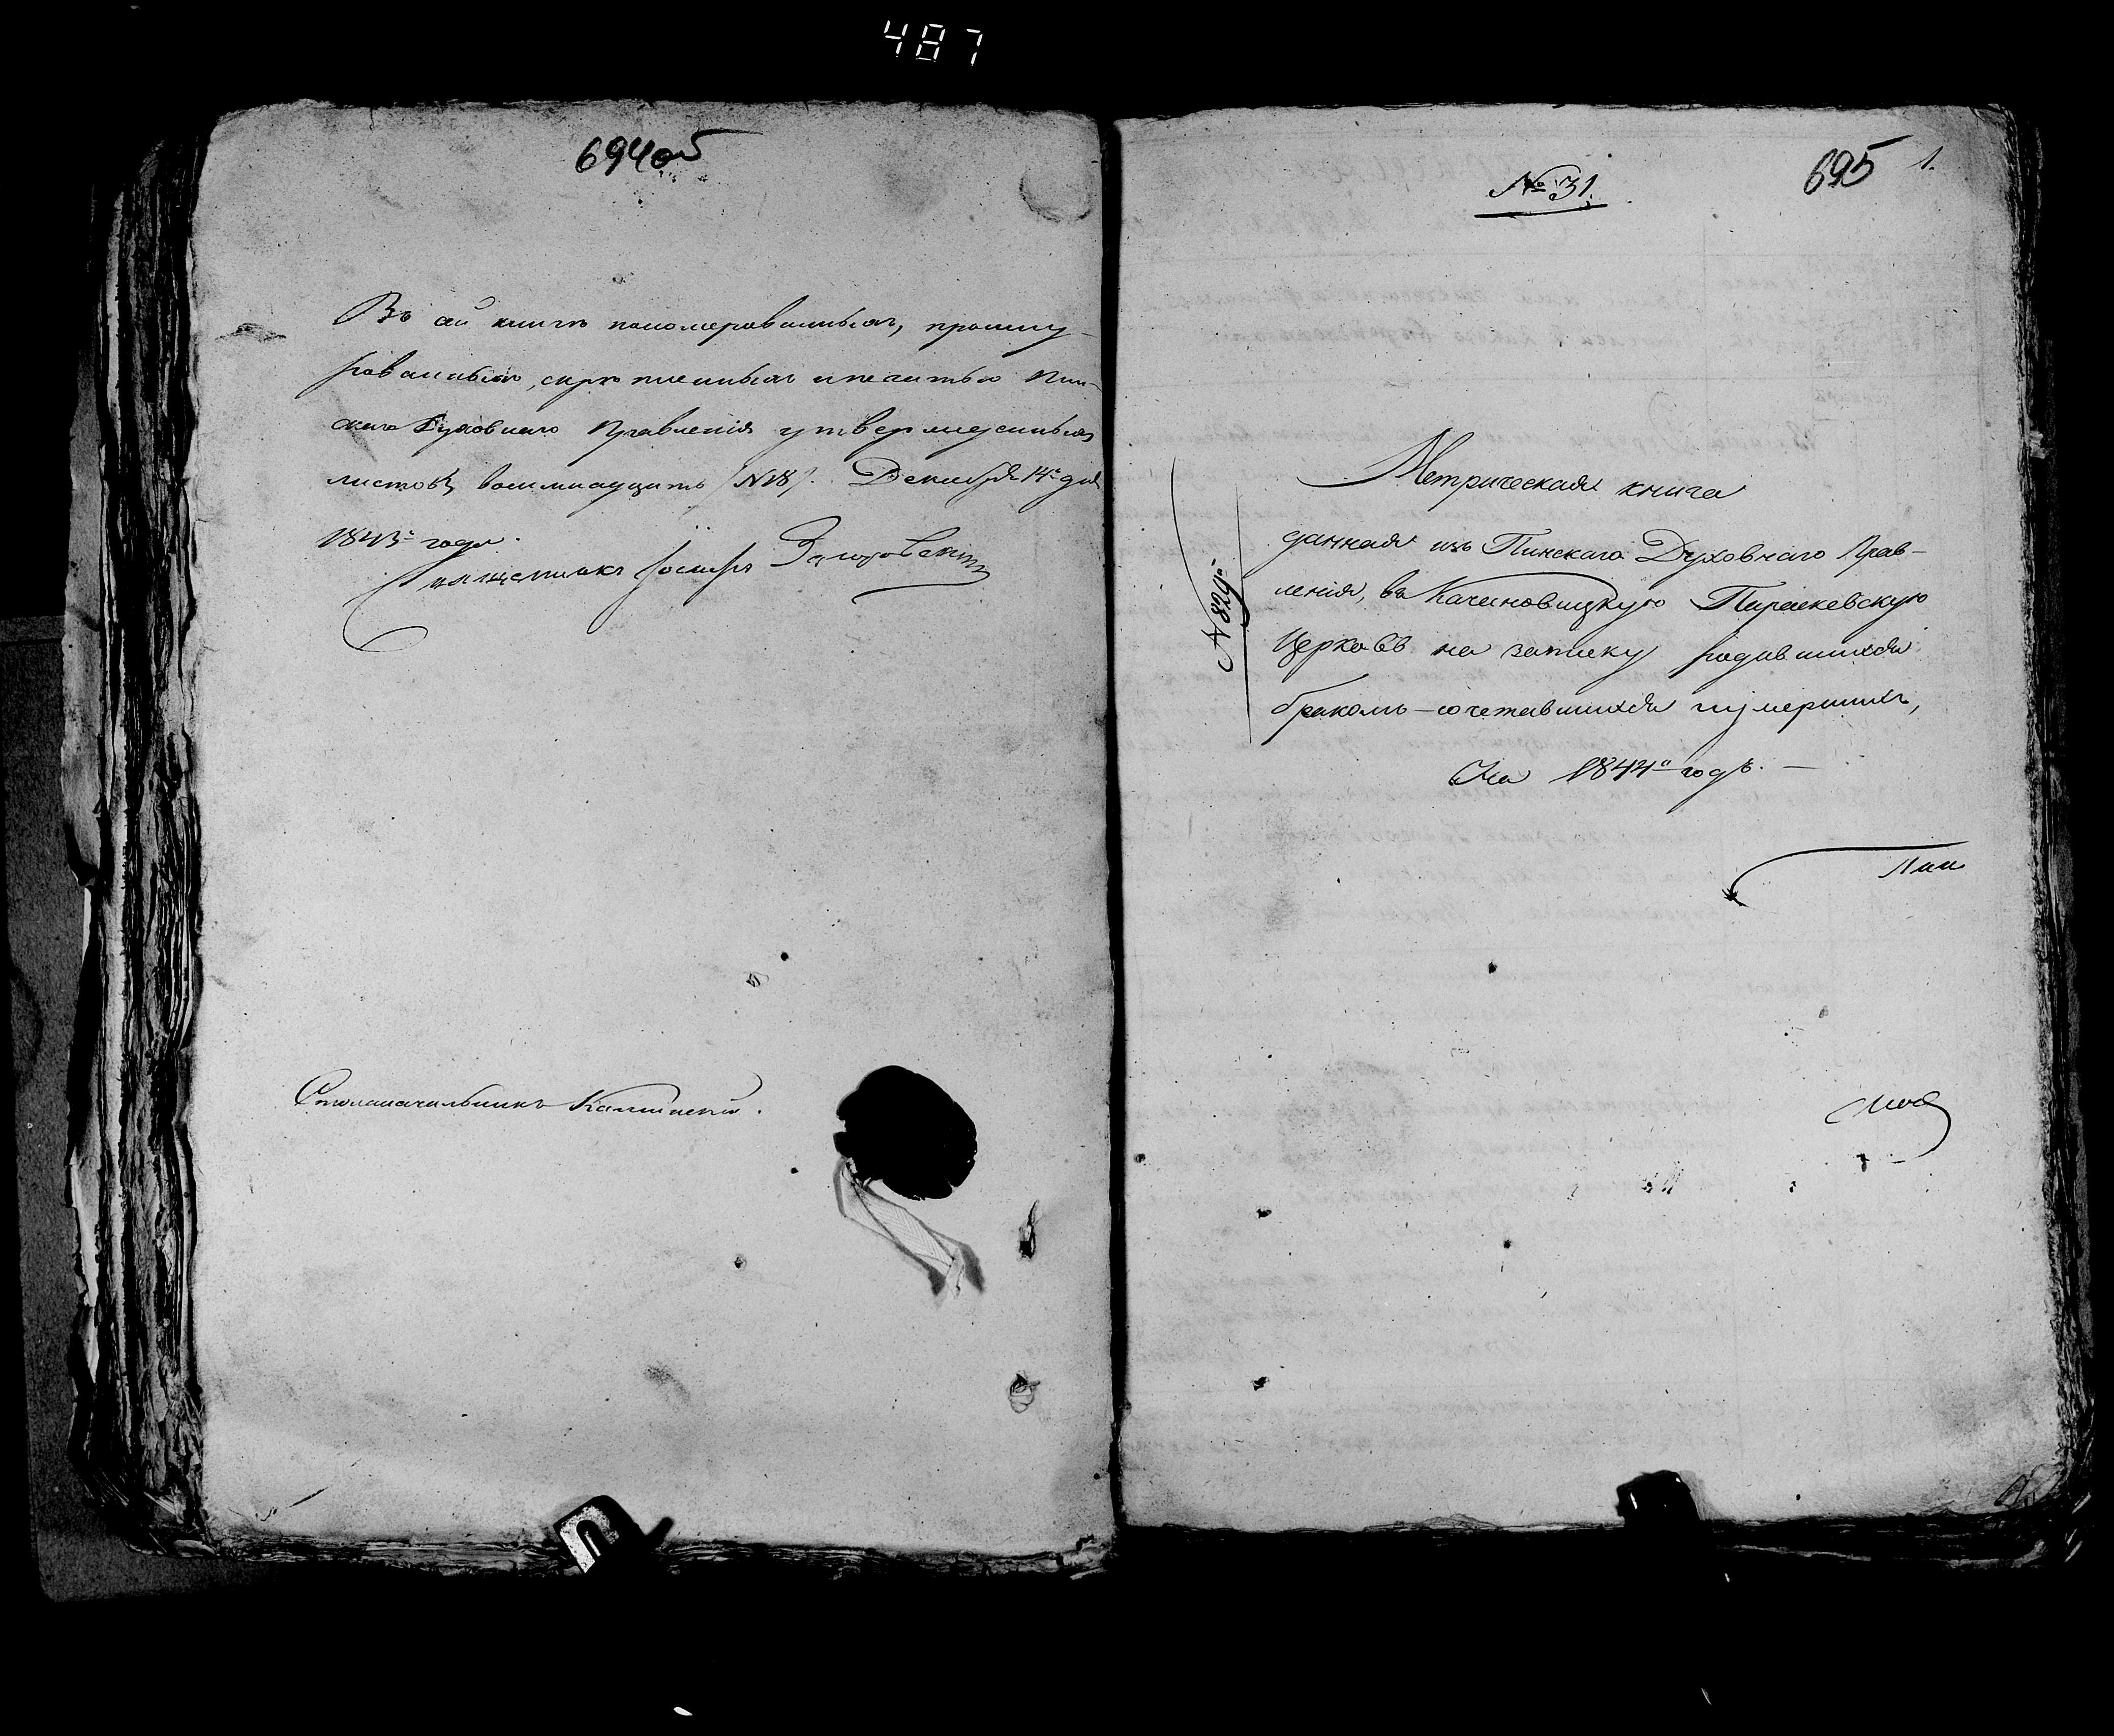 487
694об
Въ сей книгѣ пономерованныхъ, прошну-
рованныхъ, скрѣпленныхъ и печатью Пин-
скаго Духовнаго Правленія утвержденныхъ
листовъ восимнадцать /№18/. Декабря 14го дня
1843го года.
Священникъ Іосифъ
Столоначальникъ
695 1.
№31.
Метрическая книга
данная изъ Пинскаго Духовнаго Прав-
ленія, въ Качановицкую Параскевскую
Церковь на записку родившихся
бракомъ-сочетавшихся и умершихъ,
На 1844й годъ. —
№829й
Пин